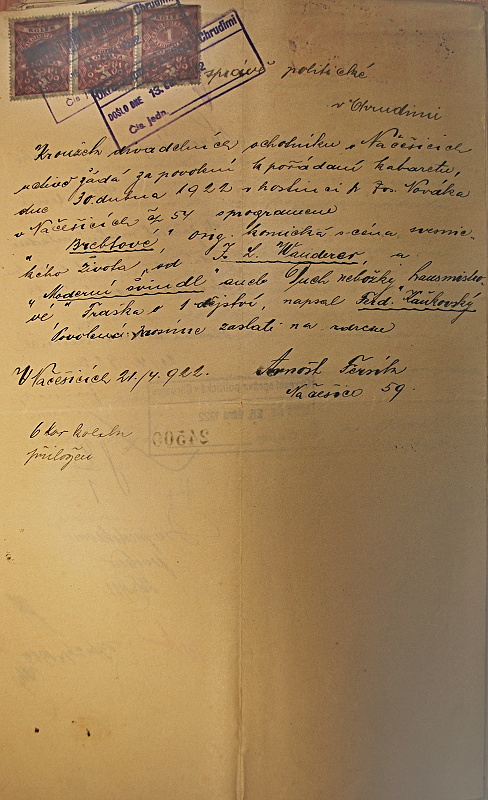 Chrudimi
DOŠLO DNE 13.
Čís. jedn.
správě politické
v Chrudimi
Kroužek divadelních ochotníků v Načešicích
žádá za povolení ku pořádání kabaretu,
dne 30. dubna 1922 v hostinci p. Jos. Nováka
v Načešicích čp 54 s programem
orig. komická scéna vesnic-
kého života, od J. L. Wanderer, a
"Moderní švindl" aneb Duch nebožky hausmistro-
vé" Fraška o 1 dějství, napsal Ferd. Kaňkovský
Povolení prosíme zaslati na adresu
V Načešicích 21/4. 922.
Arnošt
Načešice 59.
6 Kor kolku
přiložen
24500